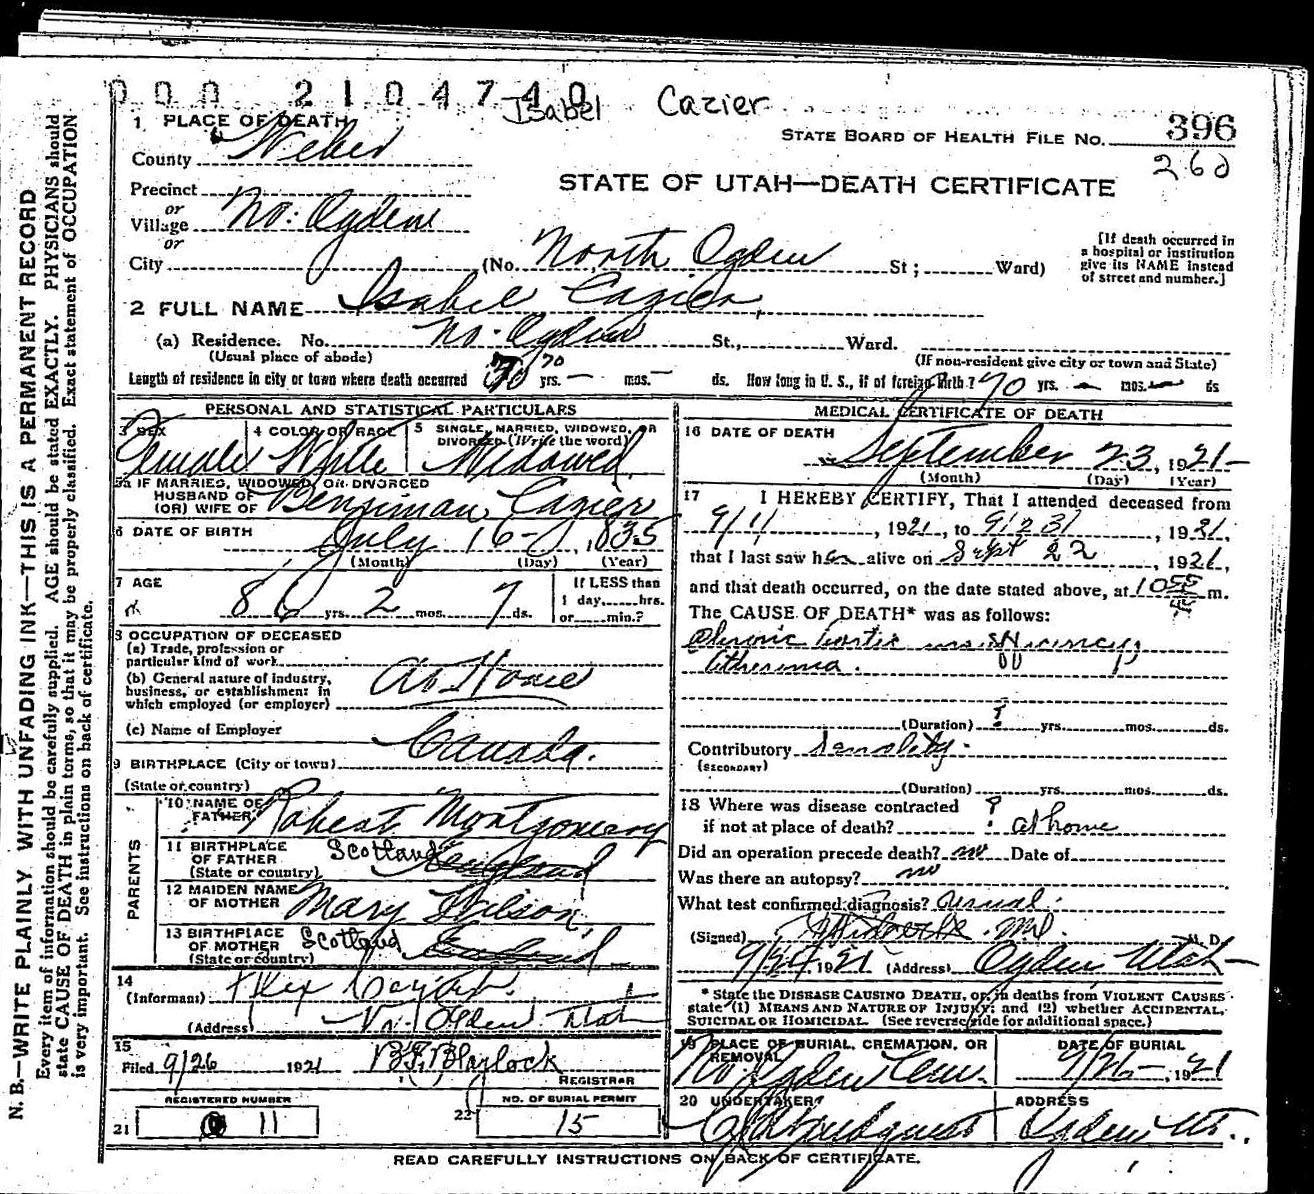 000 2104740
Isabel Cazier
1 PLACE OF DEATH
STATE BOARD OF HEALTH FILE No. 396
260
County Weber
STATE OF UTAH—DEATH CERTIFICATE
Precinct
or
Village No. Ogden
or
City (No. North Ogden St; Ward)
[If death occurred in
a hospital or institution
give its NAME instead
of street and number.]
2 FULL NAME Isabel Cazier,
(a) Residence. No. No. Ogden St., Ward.
(Usual place of abode) (If non-resident give city or town and State)
Length of residence in city or town where death occurred 70 70 yrs. — mos. — ds. How long in U. S., if of foreign birth? 70 yrs. — mos. — ds
PERSONAL AND STATISTICAL PARTICULARS
3 SEX 4 COLOR OR RACE 5 SINGLE, MARRIED, WIDOWED, OR
DIVORCED (Write the word)
Female White Widowed
5a IF MARRIED, WIDOWED, OR DIVORCED
HUSBAND OF
(OR) WIFE OF Benjiman Cazier
6 DATE OF BIRTH July 16- 1835
(Month) (Day) (Year)
7 AGE 86 yrs. 2 mos. 7 ds.
If LESS than
1 day, hrs.
or min.?
8 OCCUPATION OF DECEASED
(a) Trade, profession or
particular kind of work
(b) General nature of industry,
business, or establishment in
which employed (or employer)
At Home
(c) Name of Employer
9 BIRTHPLACE (City or town) Canada.
(State or country)
PARENTS
10 NAME OF
FATHER Robert Montgomery
11 BIRTHPLACE
OF FATHER Scotland
(State or country)
12 MAIDEN NAME
OF MOTHER Mary Wilson
13 BIRTHPLACE
OF MOTHER Scotland
(State or country)
14
(Informant) Alex
(Address) No. Ogden Utah
15
Filed 9/26 1921 Blaylock
REGISTRAR
REGISTERED NUMBER
21 11
NO. OF BURIAL PERMIT
22 15
MEDICAL CERTIFICATE OF DEATH
16 DATE OF DEATH
September 23, 1921-
(Month) (Day) (Year)
17 I HEREBY CERTIFY, That I attended deceased from
9/11, 1921, to 9/23/, 1921,
that I last saw her alive on Sept 22, 1921,
and that death occurred, on the date stated above, at 1055 m.
The CAUSE OF DEATH* was as follows:
Chronic aortic insufficiency;
Atheroma.
(Duration) ? yrs. mos. ds.
Contributory Senility.
(SECONDARY)
(Duration) yrs. mos. ds.
18 Where was disease contracted
if not at place of death? ? at home
Did an operation precede death? no Date of
Was there an autopsy? no
What test confirmed diagnosis? usual.
(Signed) M.D. M. D.
9/24 1921 (Address) Ogden, Utah-
* State the DISEASE CAUSING DEATH, or, in deaths from VIOLENT CAUSES
state (1) MEANS AND NATURE OF INJURY; and (2) whether ACCIDENTAL,
SUICIDAL OR HOMICIDAL. (See reverse side for additional space.)
19 PLACE OF BURIAL, CREMATION, OR
REMOVAL
No. Ogden Cem.
DATE OF BURIAL
9/26-, 1921
20 UNDERTAKER
ADDRESS
Ogden Ut.
READ CAREFULLY INSTRUCTIONS ON BACK OF CERTIFICATE.
N. B.—WRITE PLAINLY, WITH UNFADING INK—THIS IS A PERMANENT RECORD
Every item of information should be carefully supplied. AGE should be stated EXACTLY. PHYSICIANS should
state CAUSE OF DEATH in plain terms, so that it may be properly classified. Exact statement of OCCUPATION
is very important. See instructions on back of certificate.